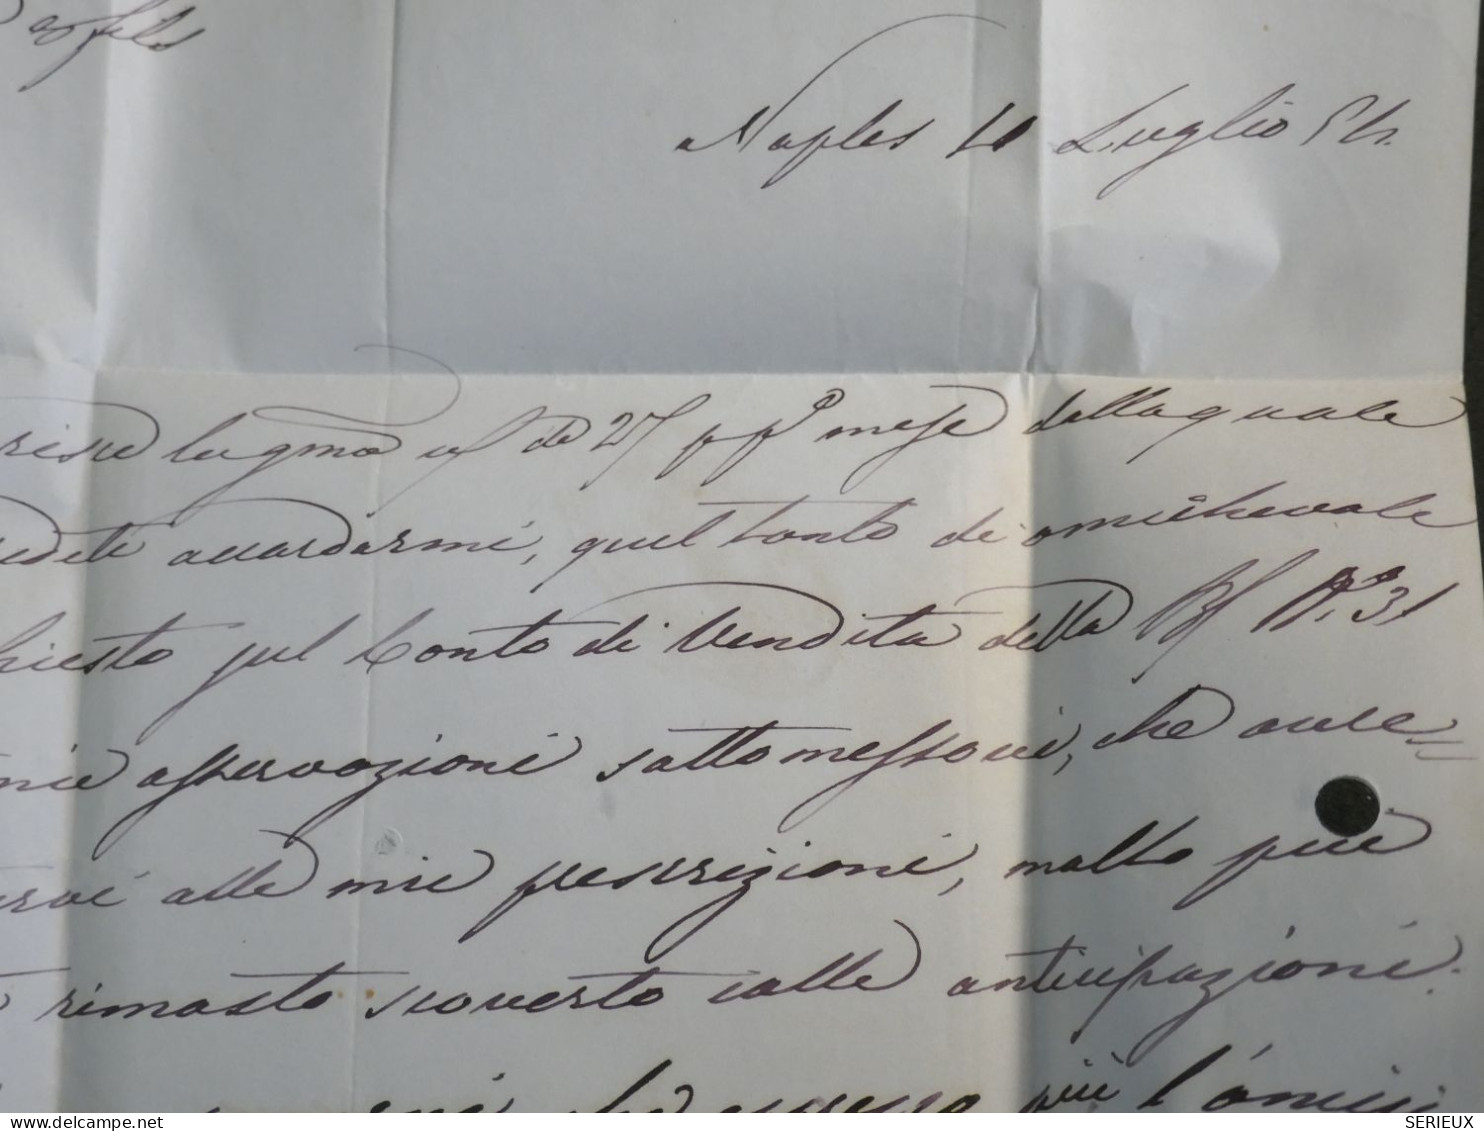 & fils
Naples 11 Luglio 54.
la gma vf de 27 pp mese dalla quale
accordarmi, quel tanto di amichevole
chiesto pel Conto di Vendita della Bf No. 31
mie osservazioni sottomessovi, che avre=
alle mie prescrizioni, molto più
rimasto scoverto colle anticipazioni.
che più l'omis
SERIEUX